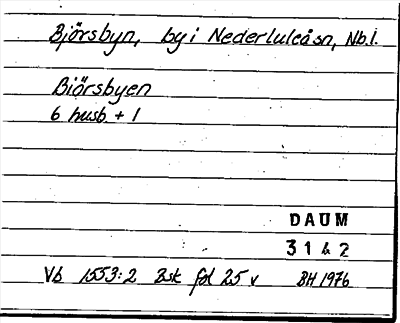 Björsbyn, by i Nederluleå sn, Nb.l.
Biörsbyen
6 husb. + 1
DAUM
3142
Vb 1553:2 Bsk fol 25 v BH 1976